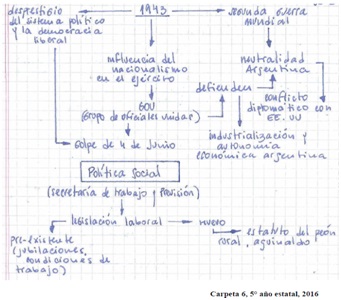 desprestigio
del sistema político
y la democracia
liberal
1943
segunda guerra
mundial
influencia del
nacionalismo
en el ejército
neutralidad
Argentina
defienden
GOU
(grupo de oficiales unidos)
conflicto
diplomático con
EE.UU
golpe de 4 de Junio
industrialización y
autonomía
económica argentina
Política
Social
(secretaría de trabajo y previsión)
legislación laboral
nuevo
pre-existente
(jubilaciones,
condiciones de
trabajo)
estatuto del peón
rural, aguinaldo
Carpeta 6, 5° año estatal, 2016